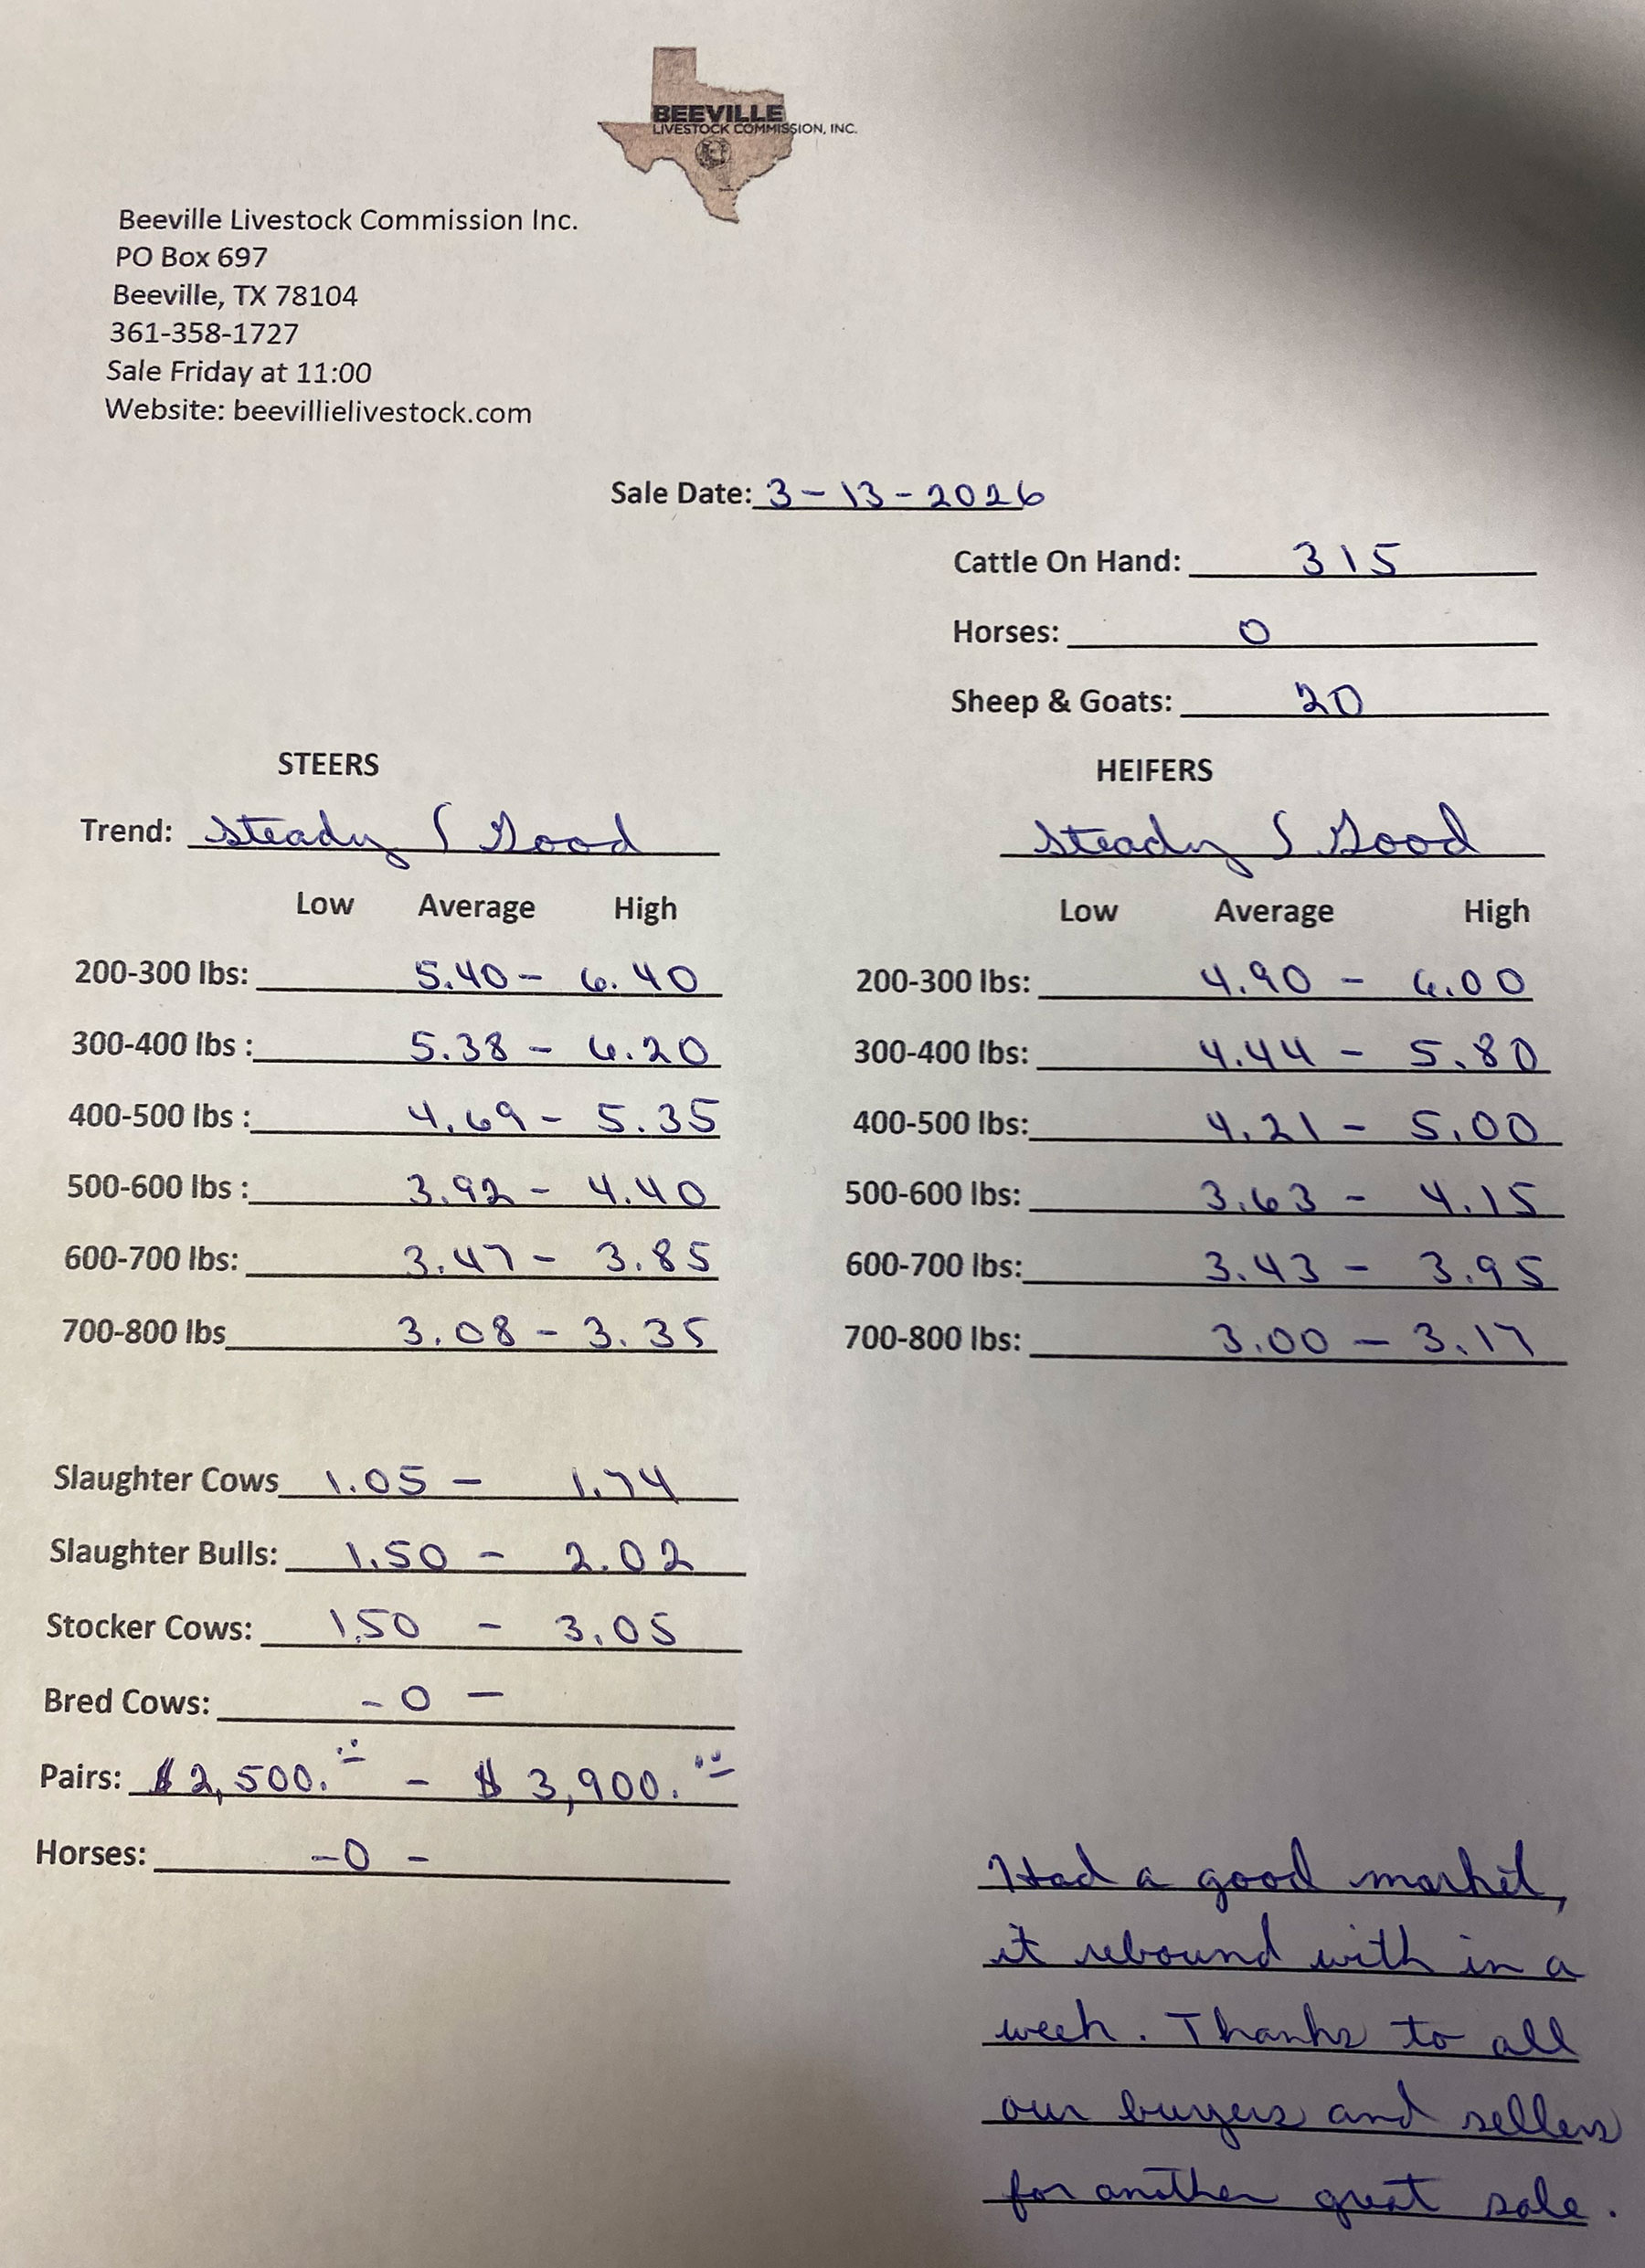 BEEVILLE
LIVESTOCK COMMISSION, INC.
Beeville Livestock Commission Inc.
PO Box 697
Beeville, TX 78104
361-358-1727
Sale Friday at 11:00
Website: beevillielivestock.com
Sale Date: 3-13-2026
Cattle On Hand: 315
Horses: 0
Sheep & Goats: 20
STEERS
Trend: Steady / Good
Low Average High
200-300 lbs: 5.40 - 6.40
300-400 lbs : 5.38 - 6.20
400-500 lbs : 4.69 - 5.35
500-600 lbs : 3.92 - 4.40
600-700 lbs: 3.47 - 3.85
700-800 lbs 3.08 - 3.35
HEIFERS
Steady / Good
Low Average High
200-300 lbs: 4.90 - 6.00
300-400 lbs: 4.44 - 5.80
400-500 lbs: 4.21 - 5.00
500-600 lbs: 3.63 - 4.15
600-700 lbs: 3.43 - 3.95
700-800 lbs: 3.00 - 3.17
Slaughter Cows 1.05 - 1.74
Slaughter Bulls: 1.50 - 2.02
Stocker Cows: 1.50 - 3.05
Bred Cows: - 0 -
Pairs: $2,500. - $3,900.
Horses: - 0 -
Had a good market,
it rebound with in a
week. Thanks to all
our buyers and sellers
for another great sale.